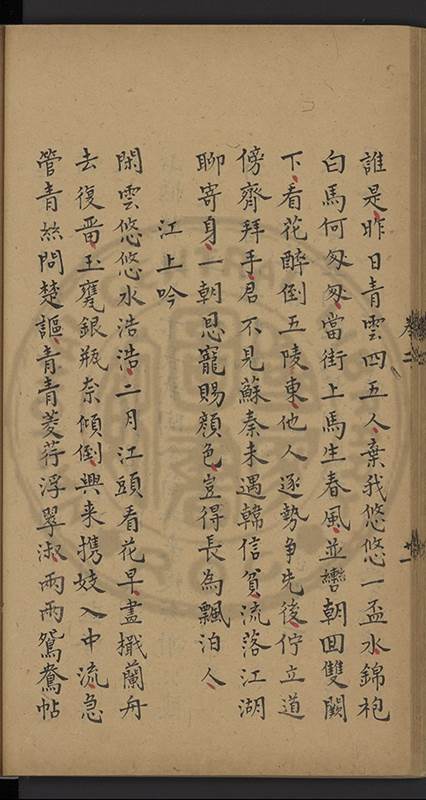 誰是昨日青雲四五人棄我悠悠一盃水錦袍
白馬何匆匆當街上馬生春風並轡朝回雙闕
下看花醉倒五陵東他人逐勢爭先後佇立道
傍齊拜手君不見蘇秦未遇韓信貧流落江湖
聊寄身一朝恩寵賜顏色豈得長為飄泊人
江上吟
閑雲悠悠水浩浩二月江頭看花早盡檝蘭舟
去復畨玉甕銀瓶奈傾倒興来携妓入中流急
管青絲問楚謳青青菱荇浮翠淑兩兩鴛鴦帖
卷二